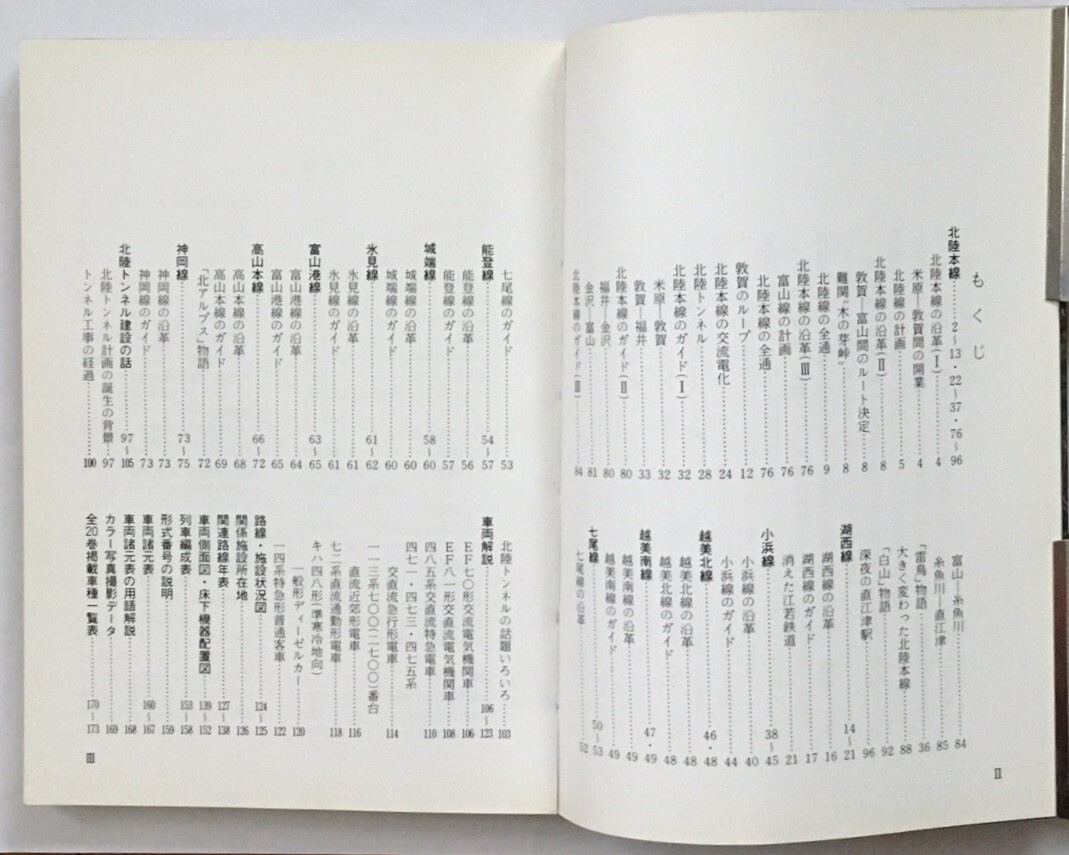 もくじ
北陸本線……2〜13・22〜37・76〜96
北陸本線の沿革(Ⅰ)……4
米原―敦賀間の開業……4
北陸線の計画……5
北陸本線の沿革(Ⅱ)……8
敦賀―富山間のルート決定……8
難関〝木の芽峠〟……8
北陸線の全通……9
北陸本線の沿革(Ⅲ)……76
富山線の計画……76
北陸本線の全通……76
敦賀のループ……12
北陸本線の交流電化……24
北陸トンネル……28
北陸本線のガイド(Ⅰ)……32
米原―敦賀……32
敦賀―福井……33
北陸本線のガイド(Ⅱ)……80
福井―金沢……80
金沢―富山……81
北陸本線のガイド(Ⅲ)……84
富山―糸魚川……84
糸魚川―直江津……85
「雷鳥」物語……36
大きく変わった北陸本線……88
「白山」物語……92
深夜の直江津駅……96
湖西線……14〜21
湖西線の沿革……16
湖西線のガイド……17
消えた江若鉄道……21
小浜線……38〜45
小浜線の沿革……40
小浜線のガイド……44
越美北線……46・48
越美北線の沿革……48
越美北線のガイド……48
越美南線……47・49
越美南線の沿革……49
越美南線のガイド……49
七尾線……50〜53
七尾線の沿革……52
Ⅱ
七尾線のガイド……53
能登線……54〜57
能登線の沿革……56
能登線のガイド……57
城端線……58〜60
城端線の沿革……60
城端線のガイド……60
氷見線……61〜62
氷見線の沿革……61
氷見線のガイド……61
富山港線……63〜65
富山港線の沿革……64
富山港線のガイド……65
高山本線……66〜72
高山本線の沿革……68
高山本線のガイド……69
「北アルプス」物語……72
神岡線……73〜75
神岡線の沿革……73
神岡線のガイド……73
北陸トンネル建設の話……97〜105
北陸トンネル計画の誕生の背景……97
トンネル工事の経過……100
北陸トンネルの話題いろいろ……103
車両解説……106〜123
EF七〇形交流電気機関車……106
EF八一形交直流電気機関車……108
四八五系交直流特急電車……110
四七一・四七三・四七五系
交直流急行形電車……114
一一三系七〇〇(二七〇〇)番台
直流近郊形電車……116
七二系直流通勤形電車……118
キハ四八形(準寒冷地向)
一般形ディーゼルカー……120
一四系特急形普通客車……122
路線・施設状況図……124〜125
関係施設所在地……126
関連路線年表……127〜138
車両側面図・床下機器配置図……139〜152
列車編成表……153〜158
形式番号の説明……159
車両諸元表……160〜167
車両諸元表の用語解説……168
カラー写真撮影データ……169
全20巻掲載車種一覧表……170〜173
Ⅲ